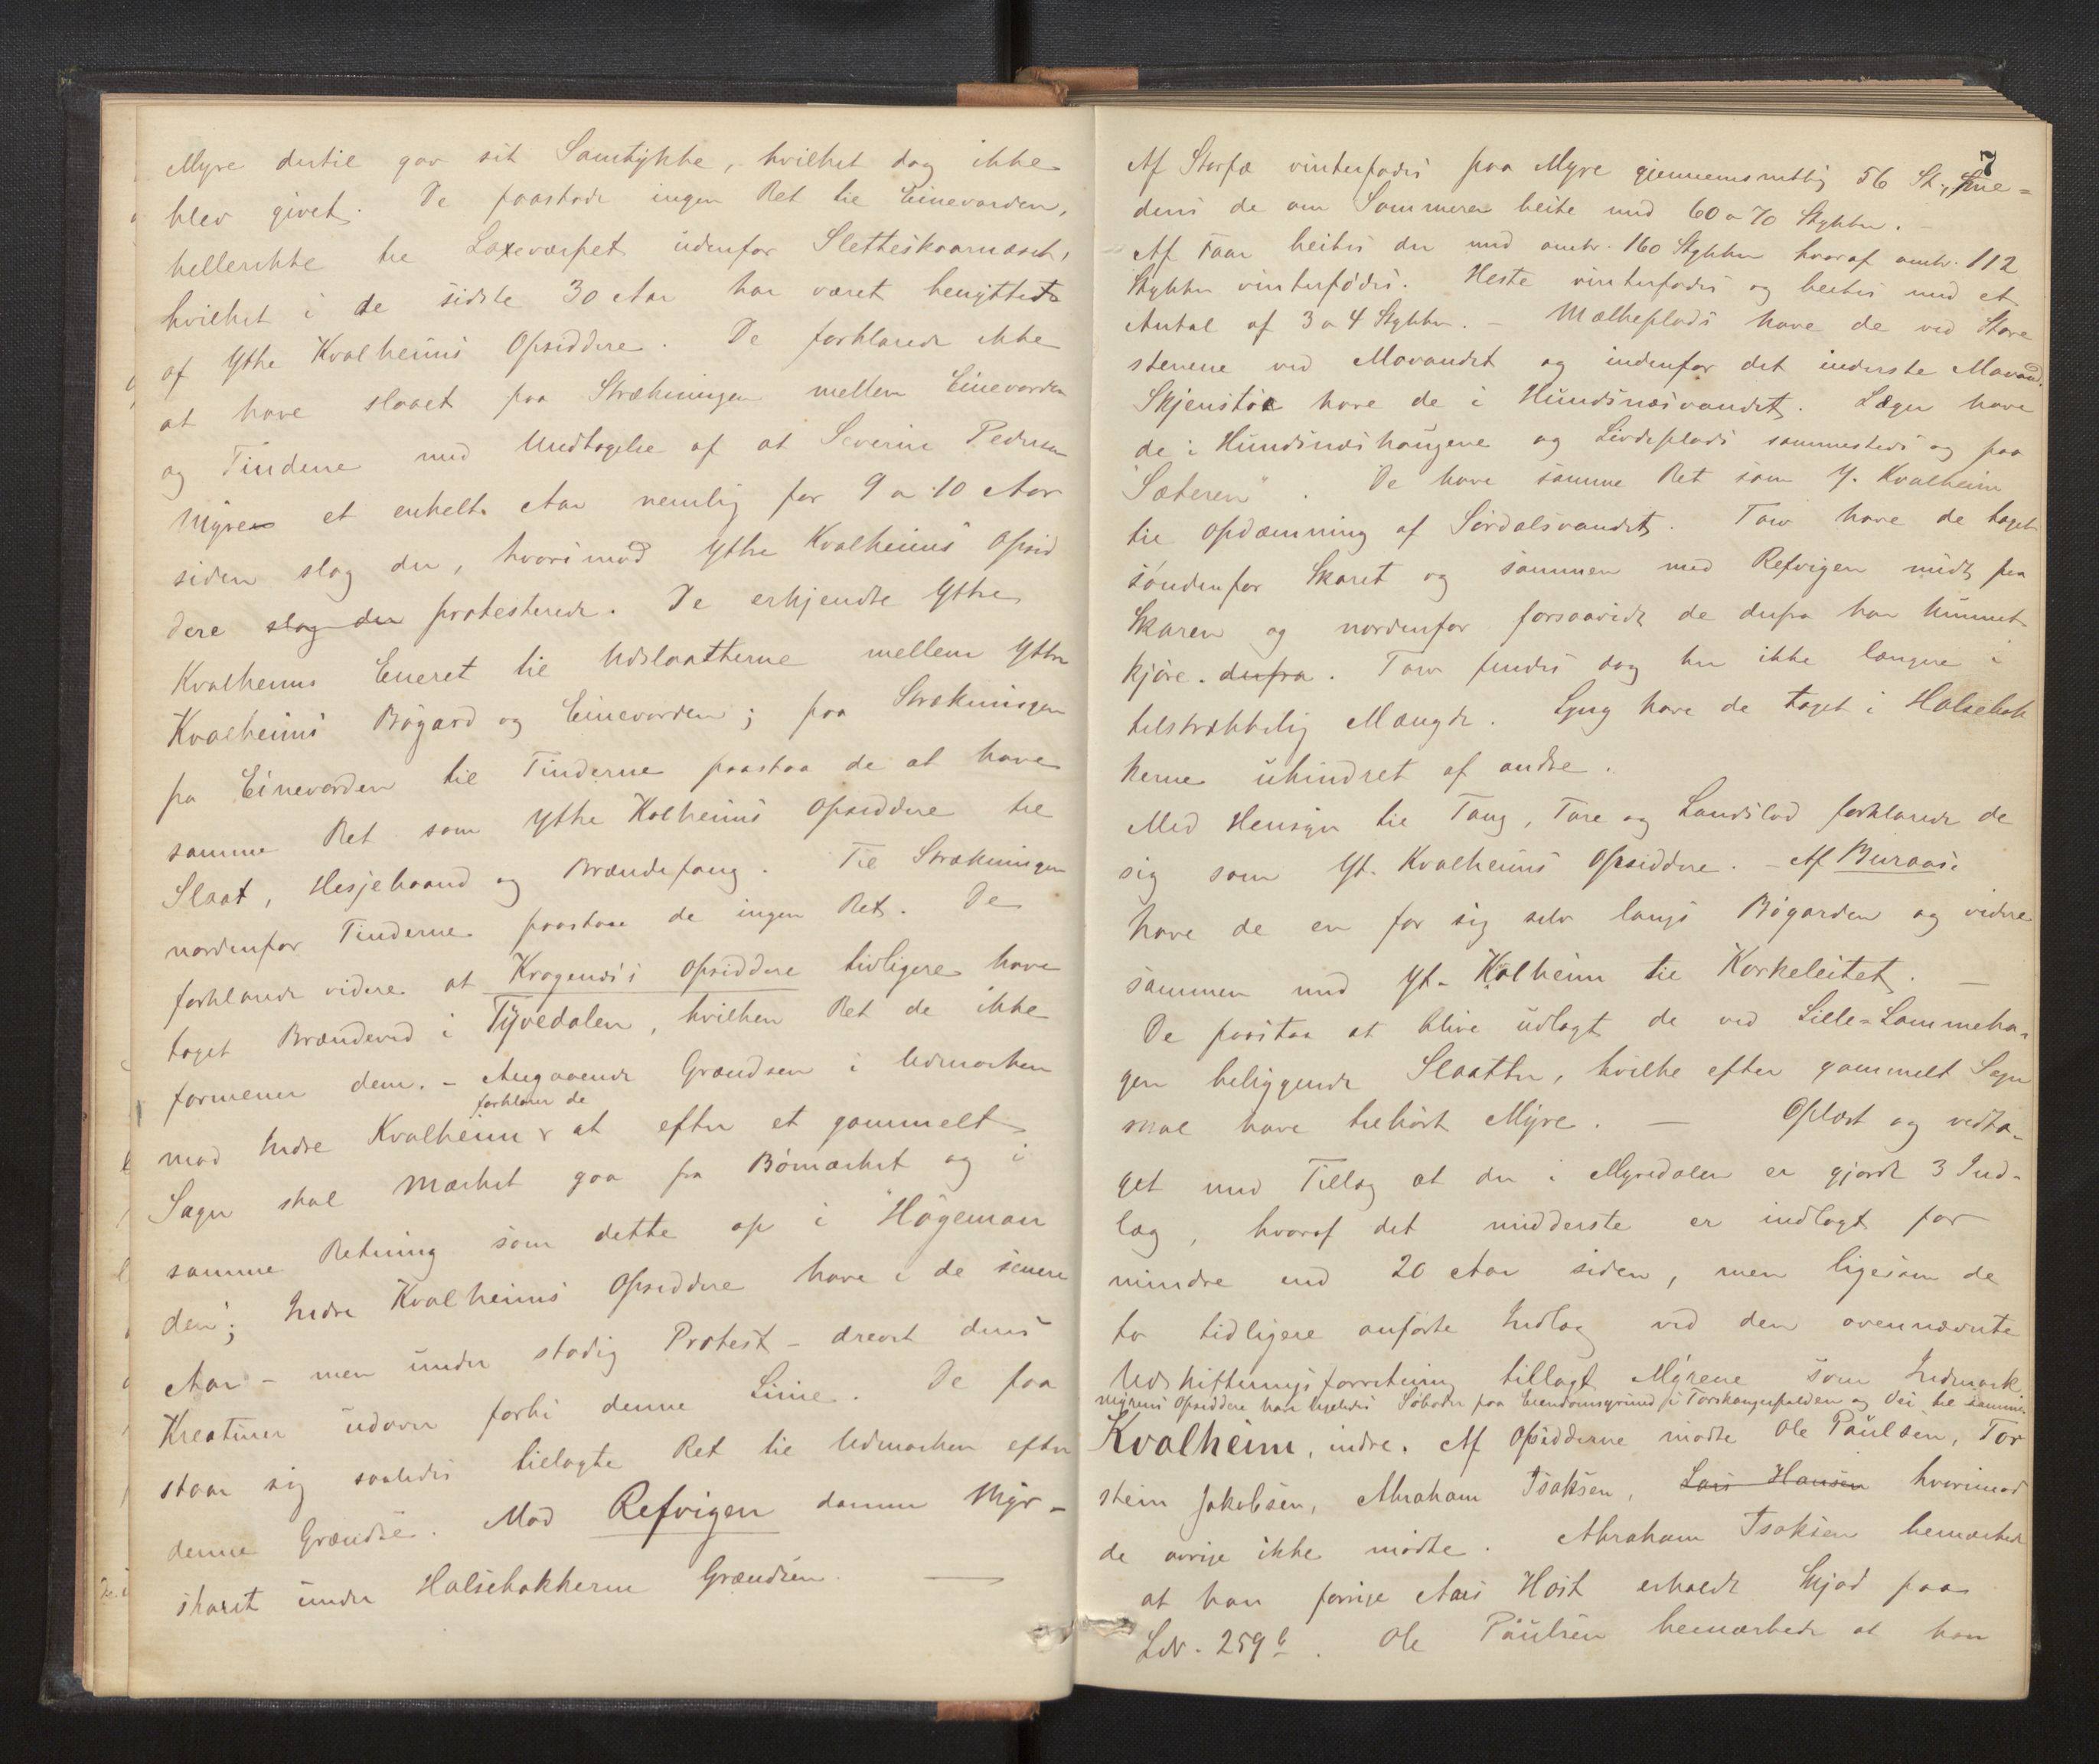 Myre dertil gav sit Samtykke, hvilket dog ikke
blev givet. De paastode ingen Ret til Einevarden,
hellerikke til Laxeværpet udenfor Sletteskaarnæset,
hvilket i de sidste 30 Aar har været benyttet
af Ytre Kvalheims Opsiddere. De forklarede ikke
at have slaaet paa Strækningen mellem Einevarden
og Tindene med Undtagelse af at Severin Pedersen
Myre et enkelt Aar nemlig for 9 a 10 Aar
siden slog der, hvorimod Ytre Kvalheims Opsid
dere slog der protesterede. De erkjendte Ytre
Kvalheims Eneret til Udslaatterne mellem Ytre
Kvalheims Bøgard og Einevarden; paa Strækningen
fra Einevarden til Tinderne paastaa de at have
samme Ret som Ytre Kvalheims Opsiddere til
Slaat, Hesjebaand og Brændefang. Til Strækningen
nordenfor Tinderne paastaa de ingen Ret. De
forklarede videre at Kragenæs's Opsiddere tidligere have
taget Brændeved i Tyvedalen, hvilken Ret de ikke
formener dem. - Angaaende Grændsen i Udmarken
forklarer de
mod Indre Kvalheim at efter et gammelt
Sagn skal Mærket gaa fra Bømærket og i
samme Retning som dette op i "Høgeman
den"; Indre Kvalheims Opsiddere have i de senere
Aar - men under stadig Protest - drevet deres
Kreaturer udover forbi denne Linie. De paa
staar sig saaledes tillagte Ret til Udmarken efter
denne Grændse. Mod Refvigen danner Myr-
skaret under Halsebakkerne Grændsen. —
7
Af Storfæ vinterfødes paa Myre gjennemsnitlig 56 St., me=
dens de om Sommeren beite med 60 a 70 Stykker. -
Af Faar beites der med omtr. 160 Stykker hvoraf omtr. 112
Stykker vinterfødes. Heste vinterfødes og beites med et
Antal af 3 a 4 Stykker. - Mælkeplads have de ved Store
stenene ved Movandet og indenfor det inderste Movand.
Skjenstøe have de i Hundsnæsvandet. Læger have
de i Hundsnæshaugene og Livdeplads sammesteds og paa
"Sæteren". De have samme Ret som Y. Kvalheim
til Opdæmning af Sørdalsvandet. Torv have de taget
søndenfor Skaret og sammen med Refvigen midt paa
Skaren og nordenfor forsaavidt de derfra har kunnet
kjøre. derfra. Torv findes dog her ikke længere i
tilstrækkelig Mængde. Lyng have de taget i Halsebak
kerne uhindret af andre.
Med Hensyn til Tang, Tare og Landslod forklarede de
sig som Yt. Kvalheims Opsiddere. - Af Buraas
have de en for sig selv langs Bøgarden og videre
sammen med Yt. Kvalheim til Korkeleitet. —
De paastaa at blive udlagt de ved Lille-Lammeha-
gen beliggende Slaatter, hvilke efter gammelt Sagn
skal have tilhørt Myre. — Oplæst og vedta-
get med Tillæg at der i Myredalen er gjordt 3 Ind-
læg, hvoraf det midderste er indlagt for
mindre end 20 Aar siden, men ligesom de
to tidligere anførte Indlæg ved den ovennævnte
Udskiftningsforretning tillagt Myrene som Indmark.
Myrens Opsiddere have ligeledes Søboder paa Eiendomsgrund i Torskangerpolden og Vei til samme.
Kvalheim, indre. Af Opsidderne mødte Ole Paulsen, Tor
stein Jakobsen, Abraham Isaksen, Lars Hansen hvorimod
de øvrige ikke mødte. Abraham Isaksen bemærkede
at han forrige Aars Høst erholdt Skjøde paa
LN. 259 b. Ole Paulsen bemærkede at han